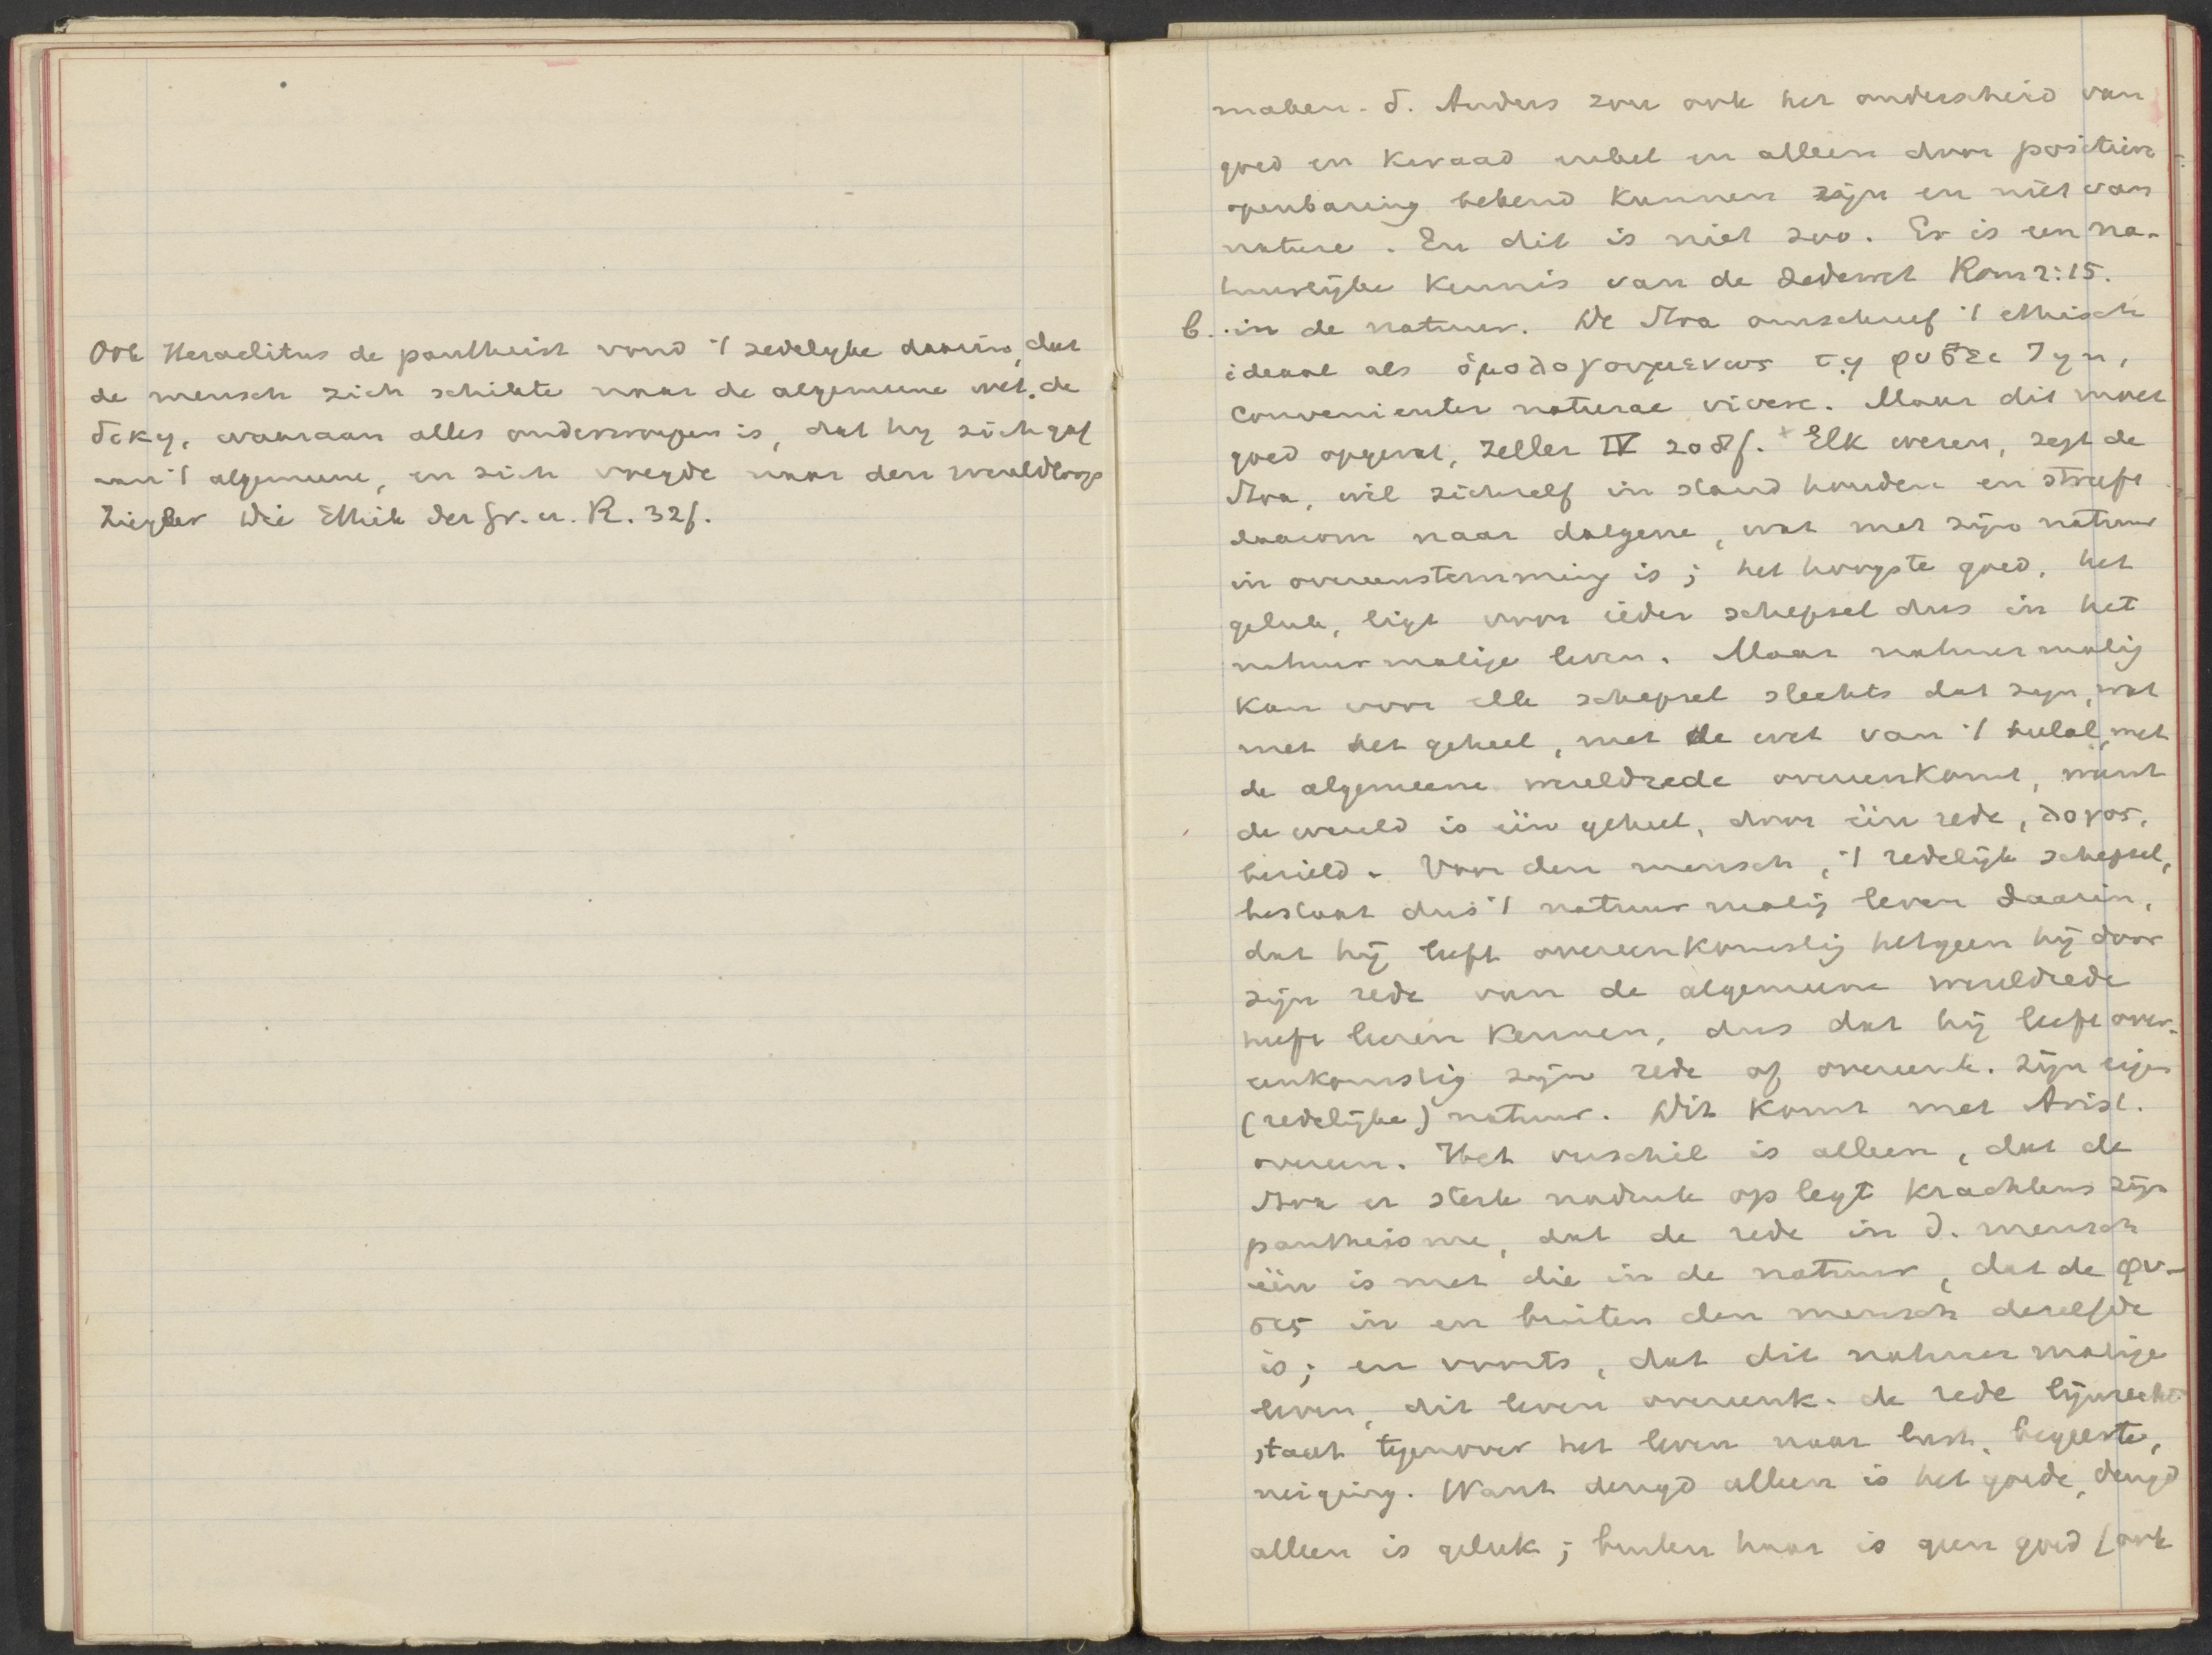 Ook Heraclitus de pantheist vond 't zedelyke daarin, dat
de mensch zich schikte naar de algemeene wet, de
δικη, waaraan alles onderworpen is, dat hy zich gaf
aan 't algemeene, en zich voegde naar den wereldloop
Ziegler Die Ethik der Gr. u. R. 32f.
maken. δ. Anders zou ook het onderscheid van
goed en kwaad enkel en alleen door positieve
openbaring bekend kunnen zijn en niet van
nature. En dit is niet zoo. Er is een na-
tuurlijke kennis van de zedewet Rom 2:15.
b. in de natuur. De Stoa omschreef 't ethisch
ideaal als ὁμολογουμενως τῃ φυσει ζην,
convenienter naturae vivere. Maar dit moet
goed opgevat, Zeller IV 208f. + Elk wezen, zegt de
Stoa, wil zichzelf in stand houden en streeft
daarom naar datgene, wat met zijn natuur
in overeenstemming is; het hoogste goed, het
geluk, ligt voor ieder schepsel dus in het
natuurmatige leven. Maar natuurmatig
kan voor elk schepsel slechts dat zijn, wat
met het geheel, met de wet van 't heelal, met
de algemeene wereldrede overeenkomt, want
de wereld is één geheel, door één rede, λογος,
bezield. Voor den mensch, 't redelijk schepsel,
bestaat dus 't natuurmatig leven daarin,
dat hij leeft overeenkomstig hetgeen hij door
zijn rede van de algemeene wereldrede
heeft leeren kennen, dus dat hij leeft over-
eenkomstig zijn rede of overeenk. zijn eigen
(redelijke) natuur. Dit komt met Arist.
overeen. Het verschil is alleen, dat de
Stoa er sterk nadruk op legt krachtens zijn
pantheisme, dat de rede in d. mensch
één is met die in de natuur, dat de φυ-
σις in en buiten den mensch dezelfde
is; en voorts, dat dit natuurmatige
leven, dit leven overeenk. de rede lijnrecht
staat tegenover het leven naar lust, begeerte,
neiging. Want deugd alleen is het goede, deugd
alleen is geluk; buiten haar is geen goed (ook